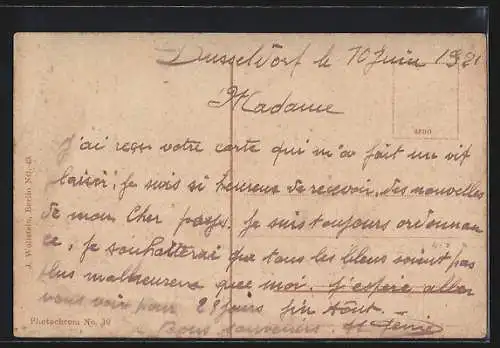 Dusseldorf le 10 Juin 1921
Madame
J'ai reçu votre carte qui m'a fait un vif
plaisir, je suis si heureux de recevoir des nouvelles
de mon Cher pays. je suis toujours ordonnan
ce, je souhaiterai que tous les bleus soient pas
plus malheureux que moi. j'espère aller
vous voir pour 28 jours fin Août.
Bons souvenirs
J. Wollstein, Berlin NO. 43.
Photochrom No. 30